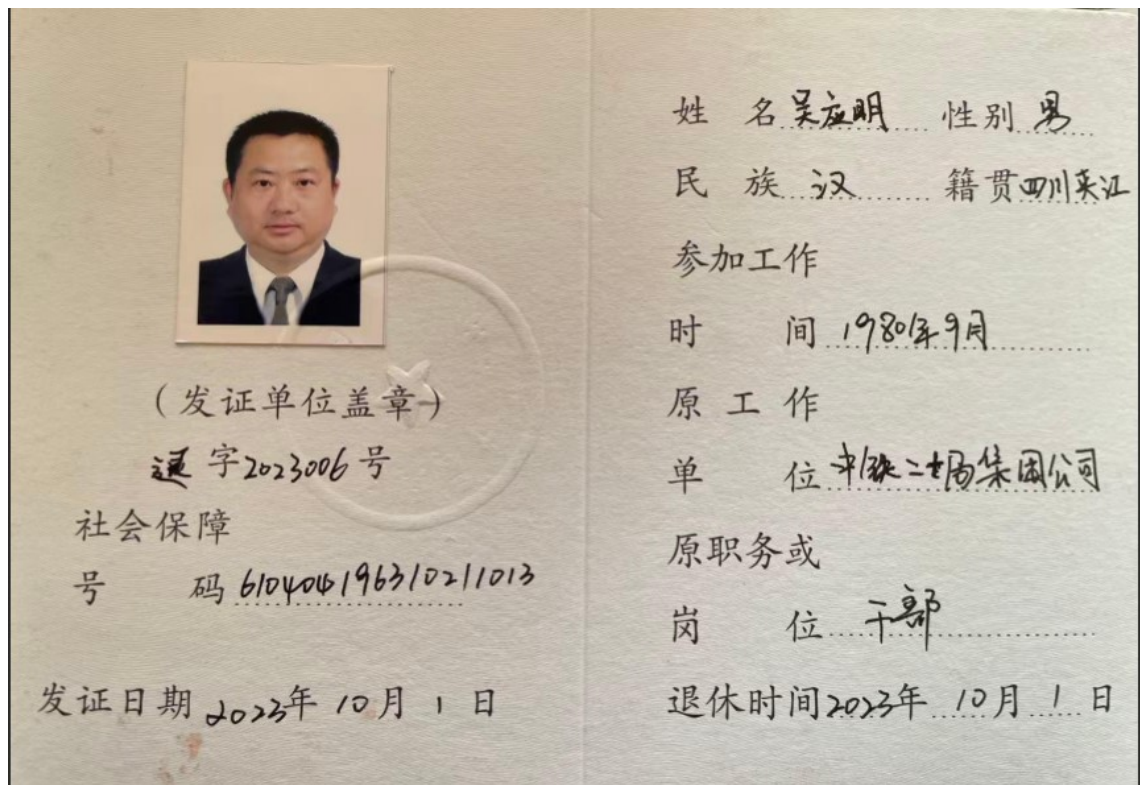 （发证单位盖章）
退字2023006号
社会保障
号 码 610404196310211013
发证日期 2023年 10月 1日
姓 名 吴应明 性别 男
民 族 汉 籍贯 四川夹江
参加工作
时 间 1980年9月
原 工 作
单 位 中铁二十局集团公司
原职务或
岗 位 干部
退休时间2023年 10月 1日